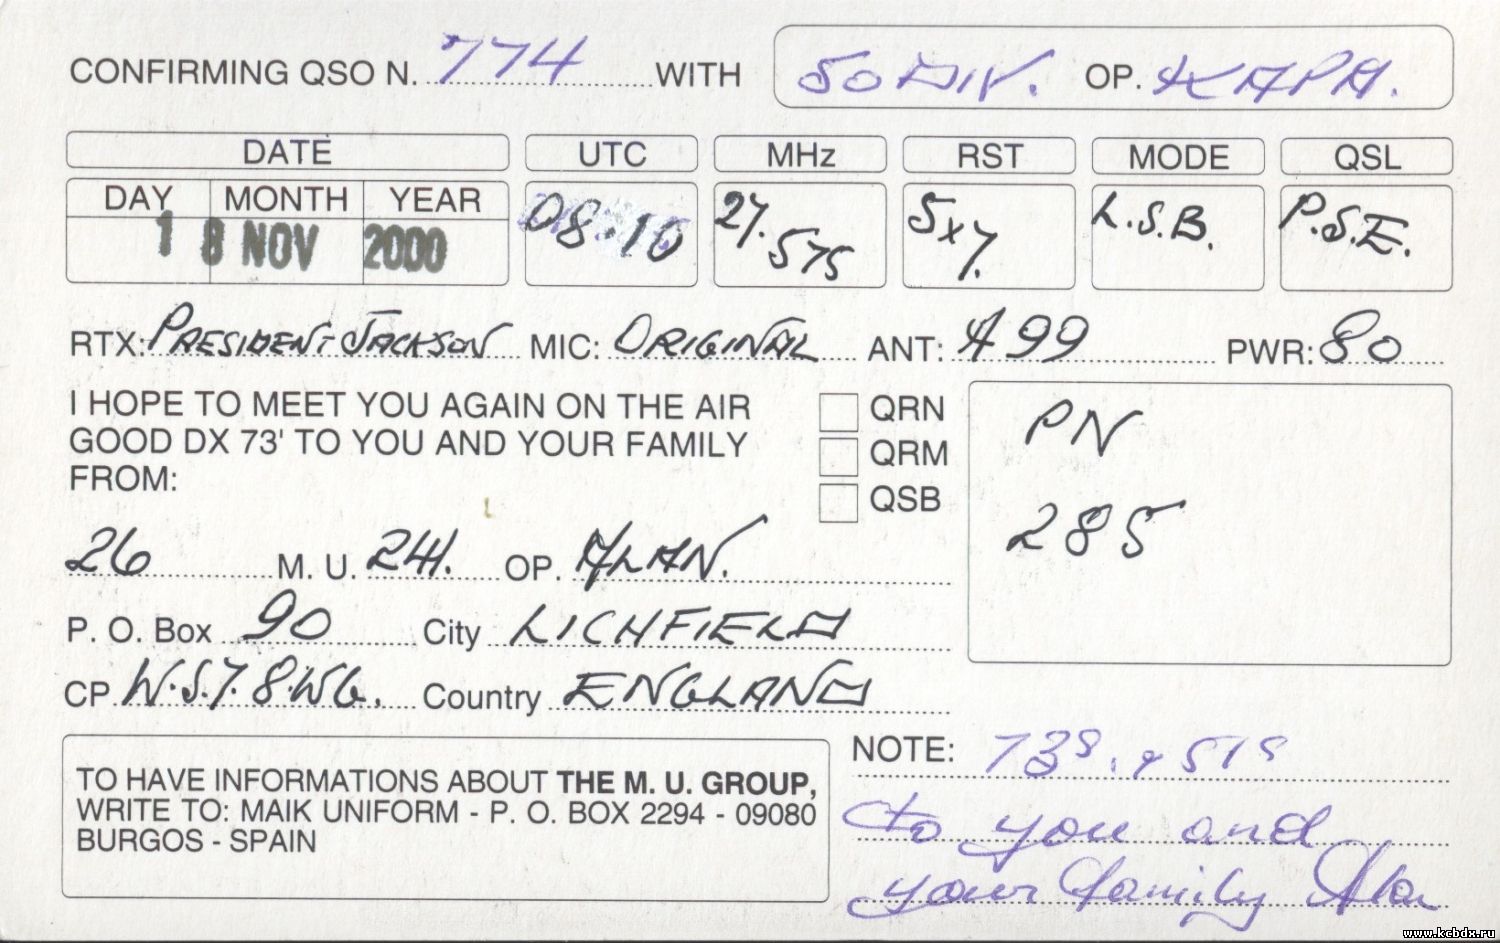 CONFIRMING QSO N. 774 WITH 50 DIV. OP. KAPA.
DATE UTC MHz RST MODE QSL
DAY MONTH YEAR
18 NOV 2000 08.10 27.575 5x7. L.S.B. P.S.E.
RTX: PRESIDENT JACKSON MIC: ORIGINAL ANT: A99 PWR: 80
I HOPE TO MEET YOU AGAIN ON THE AIR
GOOD DX 73' TO YOU AND YOUR FAMILY
FROM:
QRN
QRM
QSB
PN
285
26 M. U. 241. OP. ALAN.
P. O. Box 90 City LICHFIELD
CP. W.S.7.8.WG. Country ENGLAND
TO HAVE INFORMATIONS ABOUT THE M. U. GROUP,
WRITE TO: MAIK UNIFORM - P. O. BOX 2294 - 09080
BURGOS - SPAIN
NOTE: 73s. & 51s
to you and
your family Alan
www.kcbdx.ru